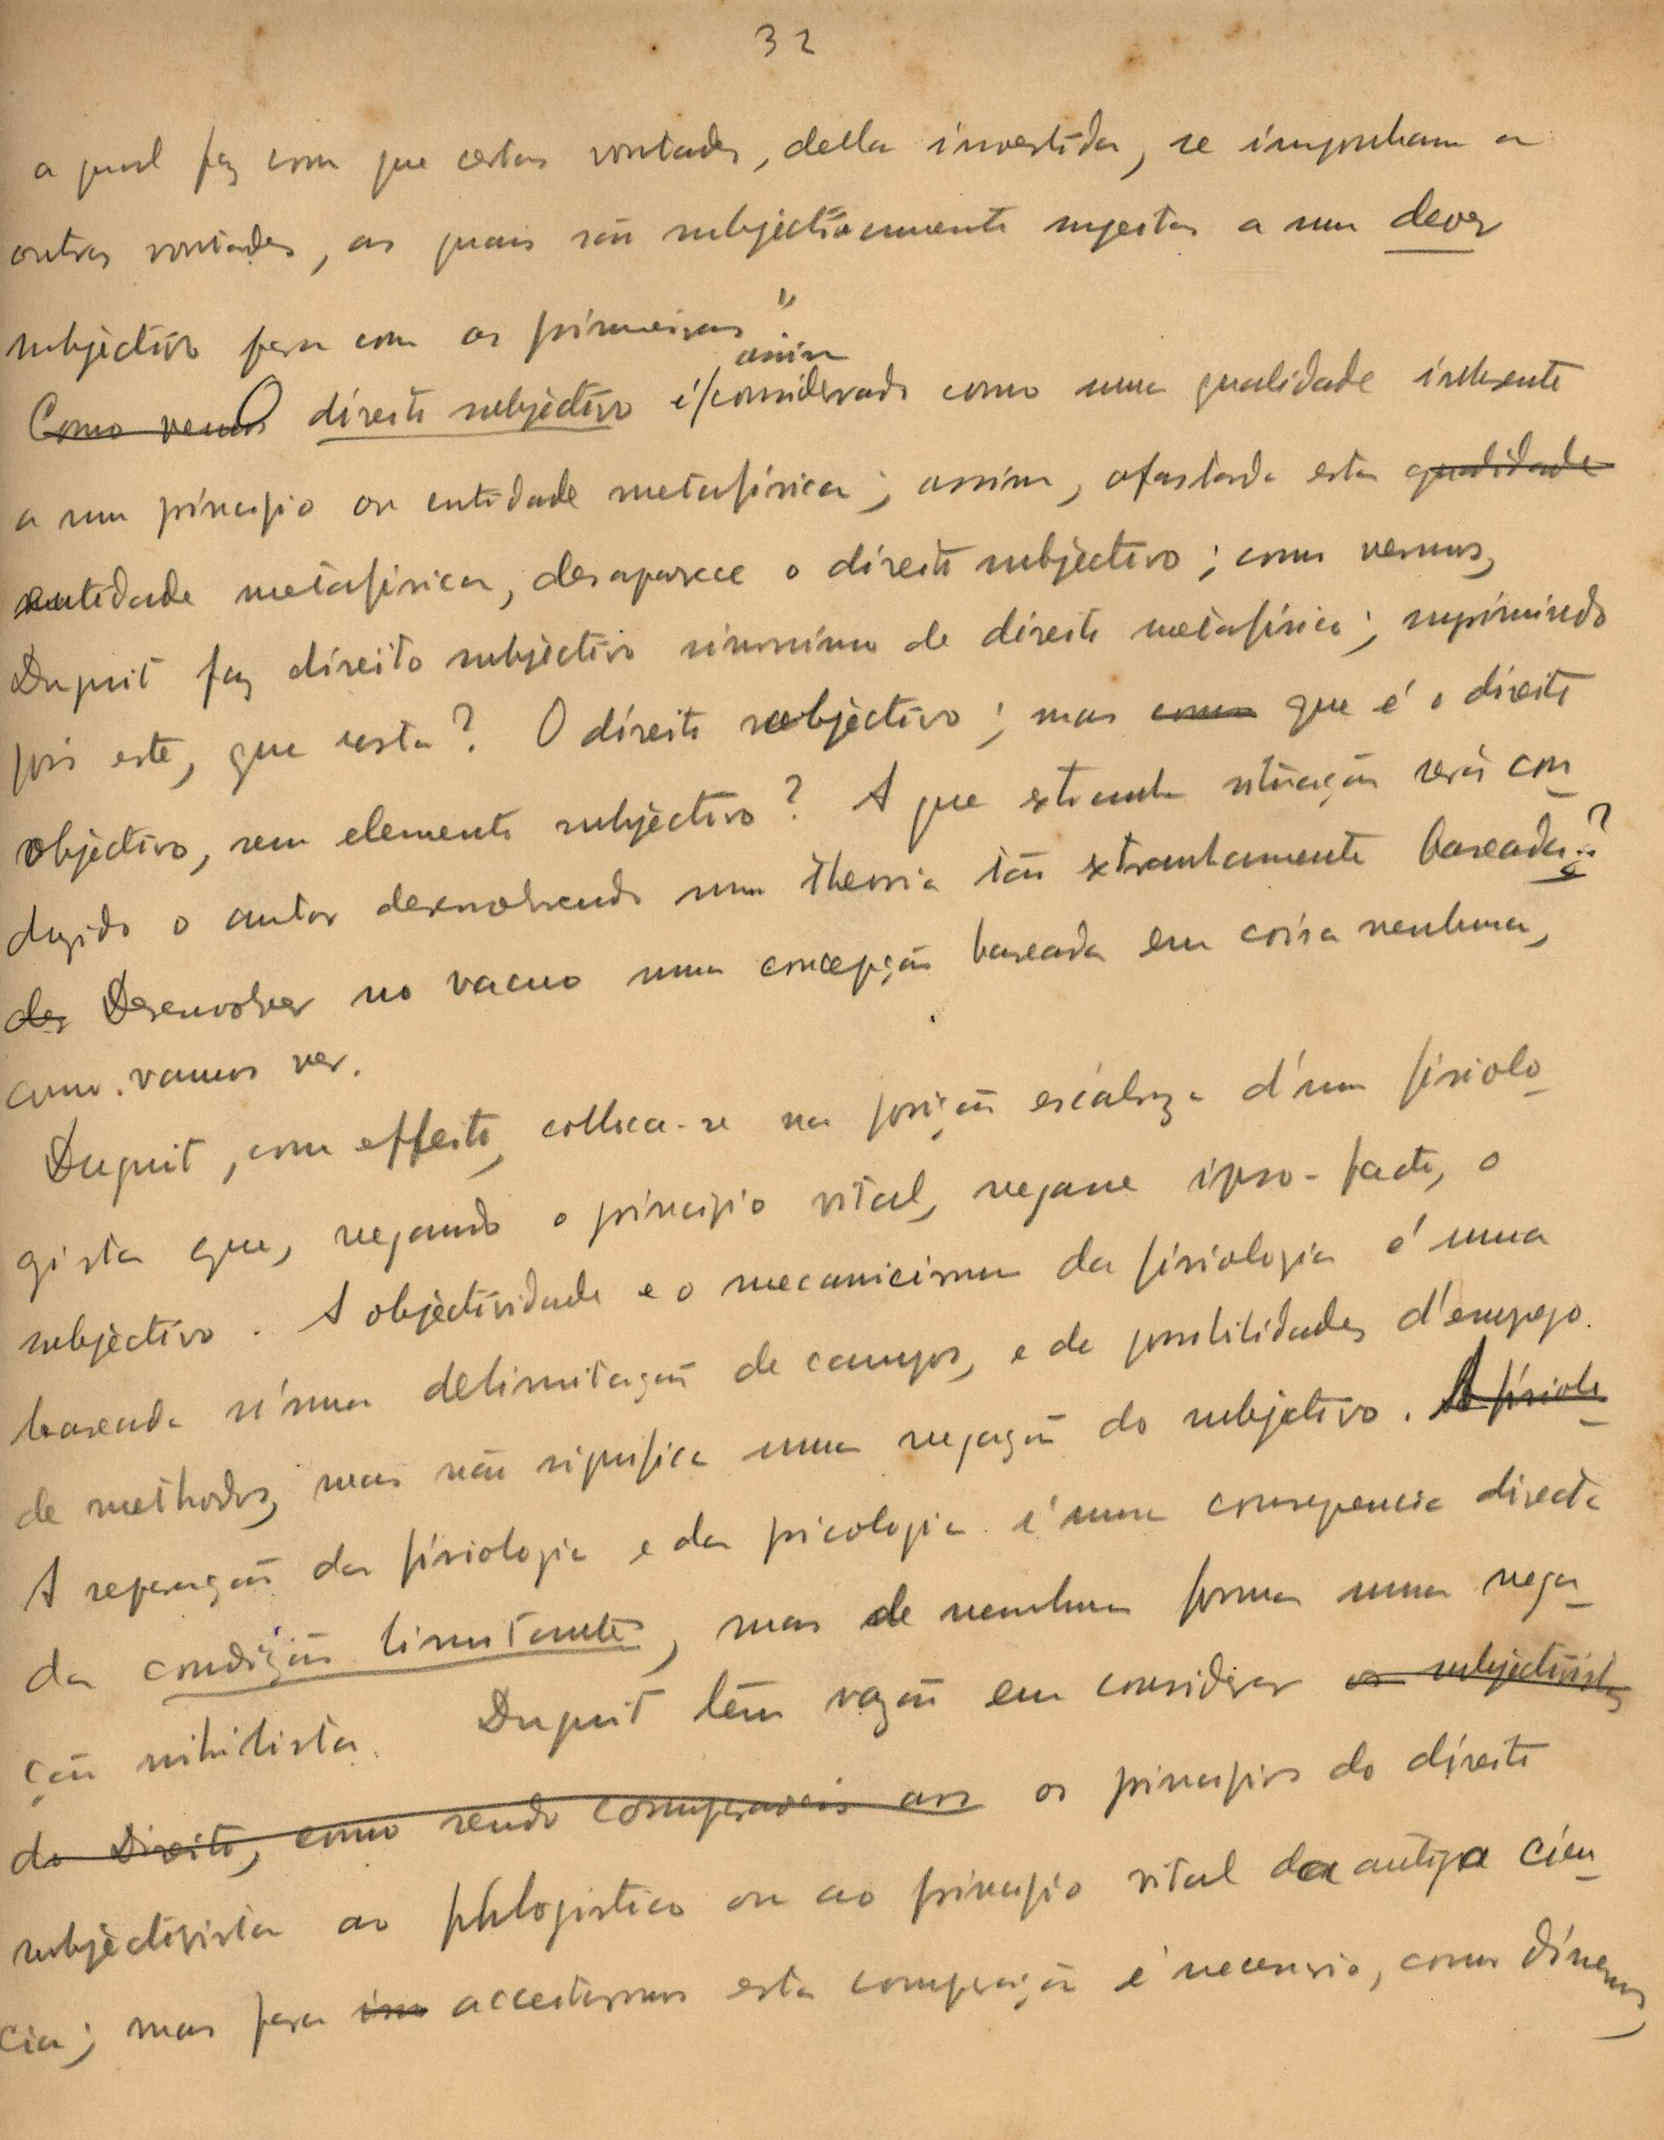 32
a qual faz com que certas vontades, della investidas, se imponham a
outras vontades, as quais são subjectivamente sujeitas a um dever
subjectivo para com as primeiras".
assim
Como vemos O direito subjectivo é/considerado como uma qualidade inherente
a um principio ou entidade metafisica; assim, afastada esta qualidade
entidade metafisica, desaparece o direito subjectivo; como vemos,
Duguit faz direito subjectivo sinonimo de direito metafisico; suprimindo
pois este, que resta? O direito objectivo; mas como que é o direito
objectivo, sem elemento subjectivo? A que extranha situação será con-
duzido o autor desenvolvendo uma theoria tão extranhamente baseada?
des Desenvolver no vacuo uma concepção baseada em coisa nenhuma,
como vamos ver.
Duguit, com effeito, colloca-se na posição d'um fisiolo-
gista que, negando o principio vital, negasse ipso-facto, o
subjectivo. A objectividade e o mecanicismo da fisiologia é uma
baseada n'uma delimitação de campos, e de possibilidades d'emprego
de methodos, mas não significa uma negação do subjetivo. A fisiolo-
A separação da fisiologia e da psicologia é uma consequencia directa
da condição limitante, mas de nenhuma forma uma nega-
ção nihilista. Duguit tem razão em considerar os subjectivistas
do Direito, como sendo comparaveis aos os principios do direito
subjectivista ao phlogistico ou ao principio vital da antiga cien-
cia; mas para acceitarmos esta comparação é necessario, como dissemos,